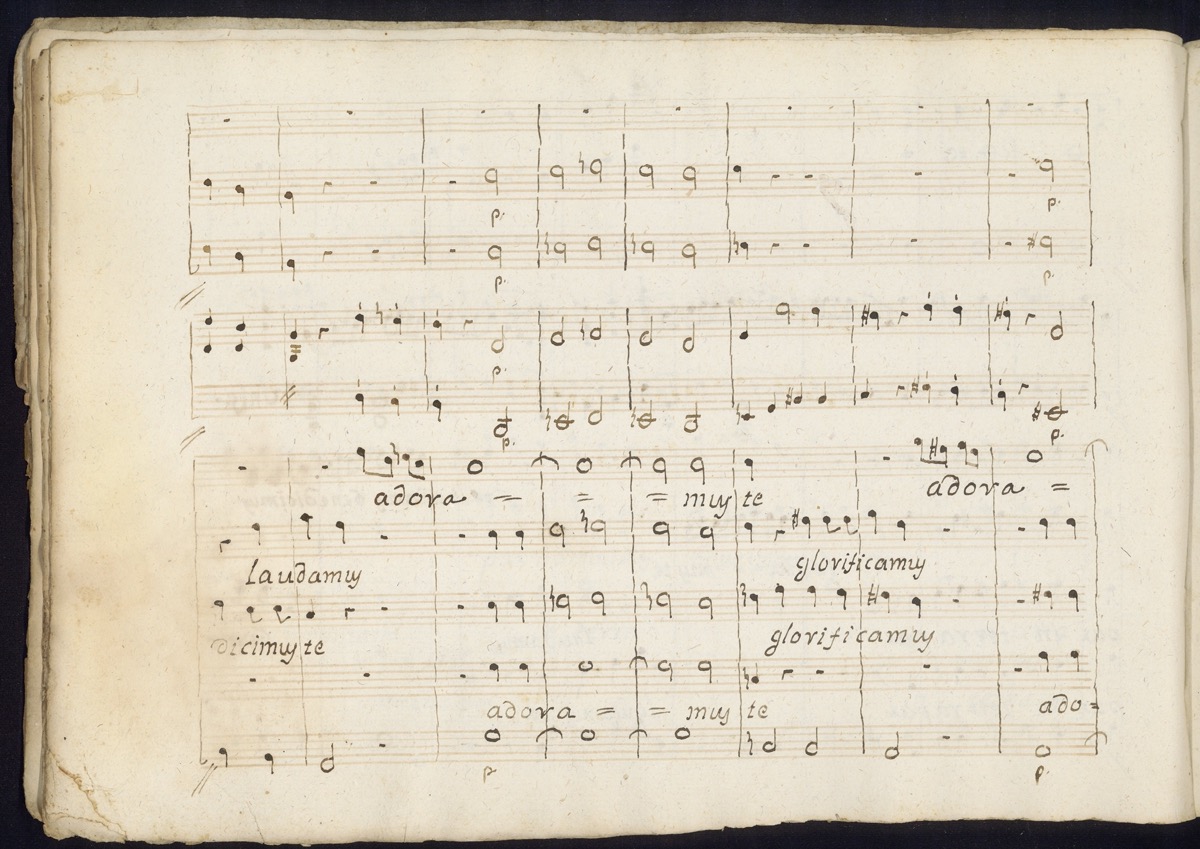 p. p.
p. p.
p.
p. p.
adora = = = muy te adora =
laudamuy glorificamuy
dicimuy te glorificamuy
adora = = muy te ado=
p. p.